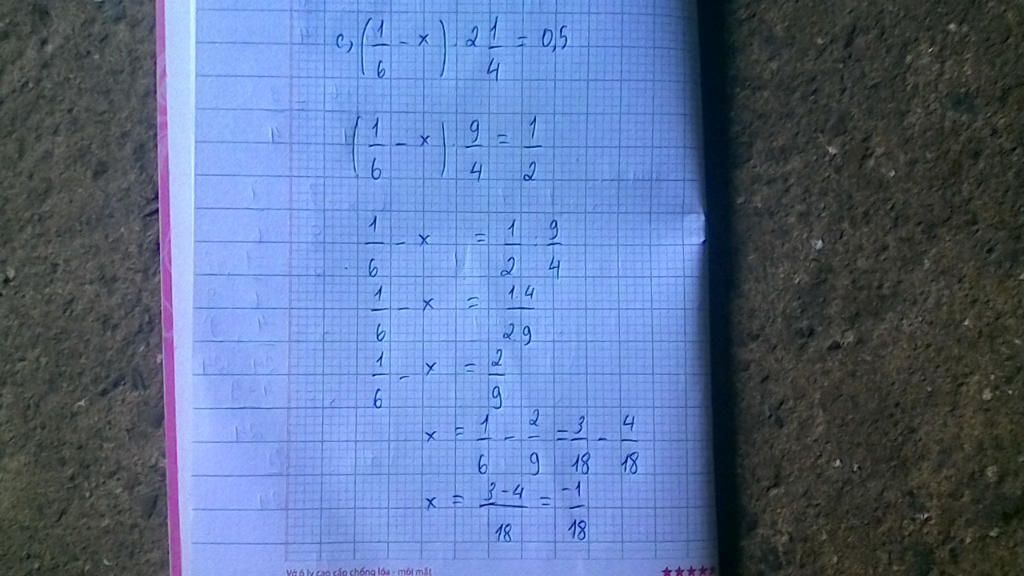 c, (1/6 - x) . 2 1/4 = 0,5
(1/6 - x) . 9/4 = 1/2
1/6 - x = 1/2 : 9/4
1/6 - x = 1.4/2.9
1/6 - x = 2/9
x = 1/6 - 2/9 = 3/18 - 4/18
x = 3-4/18 = -1/18
Vở ô ly cao cấp chống lóa - mỏi mắt